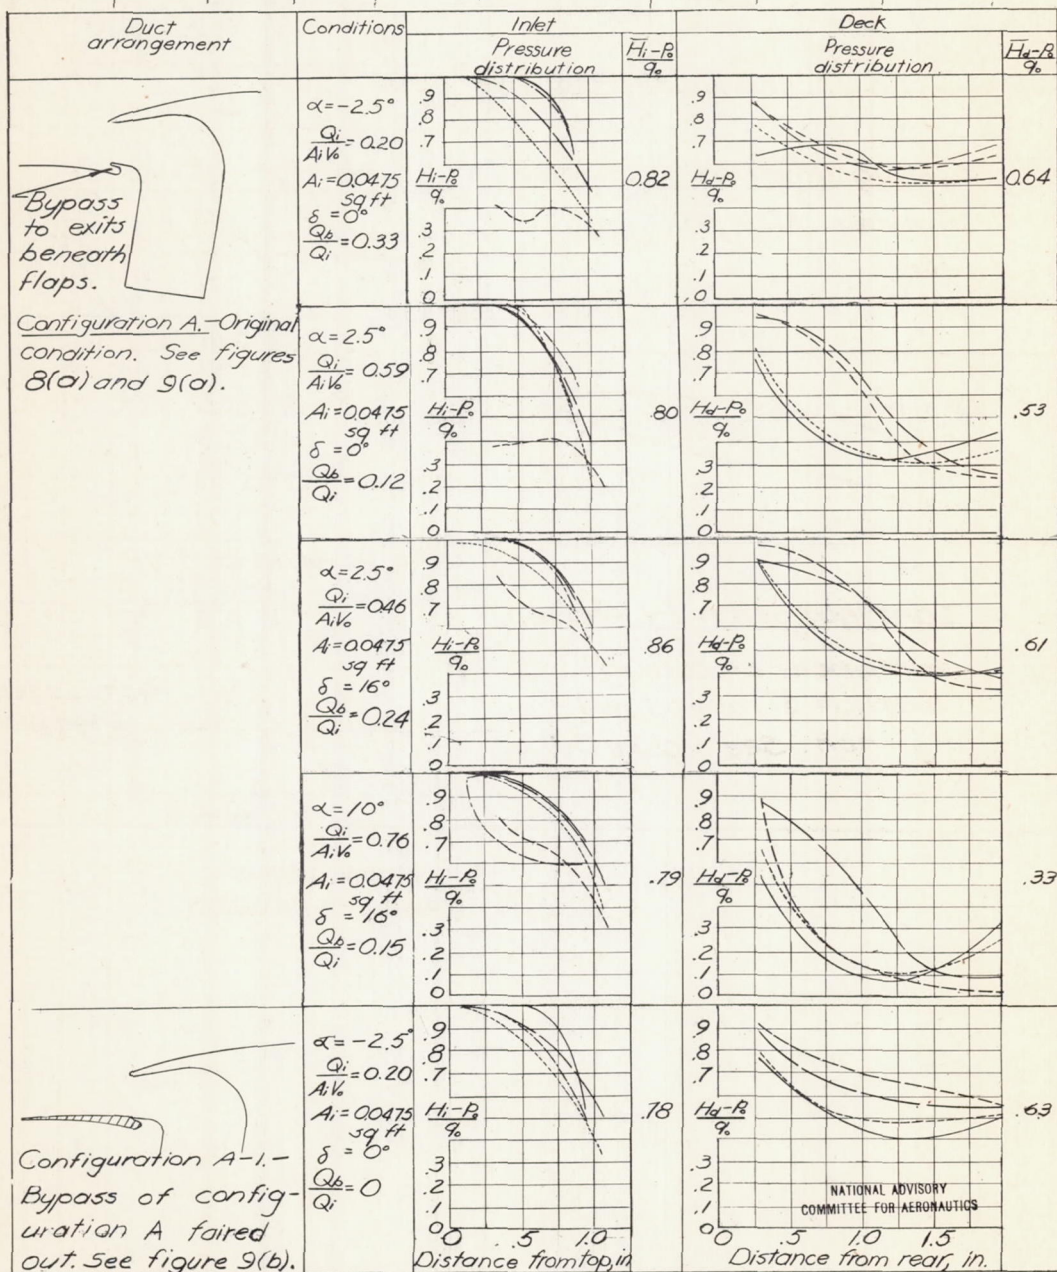 Duct
arrangement
Conditions
Inlet
Pressure
distribution
H̅i-P₀
q₀
Deck
Pressure
distribution
H̅d-P₀
q₀
Bypass
to exits
beneath
flaps.
Configuration A.-Original
condition. See figures
8(a) and 9(a).
α=-2.5°
Qi/AiV₀=0.20
Ai=0.0475
sq ft
δ=0°
Qb/Qi=0.33
.9
.8
.7
Hi-P₀
q₀
.3
.2
.1
0
0.82
.9
.8
.7
Hd-P₀
q₀
.3
.2
.1
0
0.64
α=2.5°
Qi/AiV₀=0.59
Ai=0.0475
sq ft
δ=0°
Qb/Qi=0.12
.9
.8
.7
Hi-P₀
q₀
.3
.2
.1
0
.80
.9
.8
.7
Hd-P₀
q₀
.3
.2
.1
0
.53
α=2.5°
Qi/AiV₀=0.46
Ai=0.0475
sq ft
δ=16°
Qb/Qi=0.24
.9
.8
.7
Hi-P₀
q₀
.3
.2
.1
0
.86
.9
.8
.7
Hd-P₀
q₀
.3
.2
.1
0
.61
α=10°
Qi/AiV₀=0.76
Ai=0.0475
sq ft
δ=16°
Qb/Qi=0.15
.9
.8
.7
Hi-P₀
q₀
.3
.2
.1
0
.79
.9
.8
.7
Hd-P₀
q₀
.3
.2
.1
0
.33
Configuration A-1.-
Bypass of config-
uration A faired
out. See figure 9(b).
α=-2.5°
Qi/AiV₀=0.20
Ai=0.0475
sq ft
δ=0°
Qb/Qi=0
.9
.8
.7
Hi-P₀
q₀
.3
.2
.1
0
0 .5 1.0
Distance from top, in
.78
.9
.8
.7
Hd-P₀
q₀
.3
.2
.1
0
0 .5 1.0 1.5
Distance from rear, in.
.63
NATIONAL ADVISORY
COMMITTEE FOR AERONAUTICS